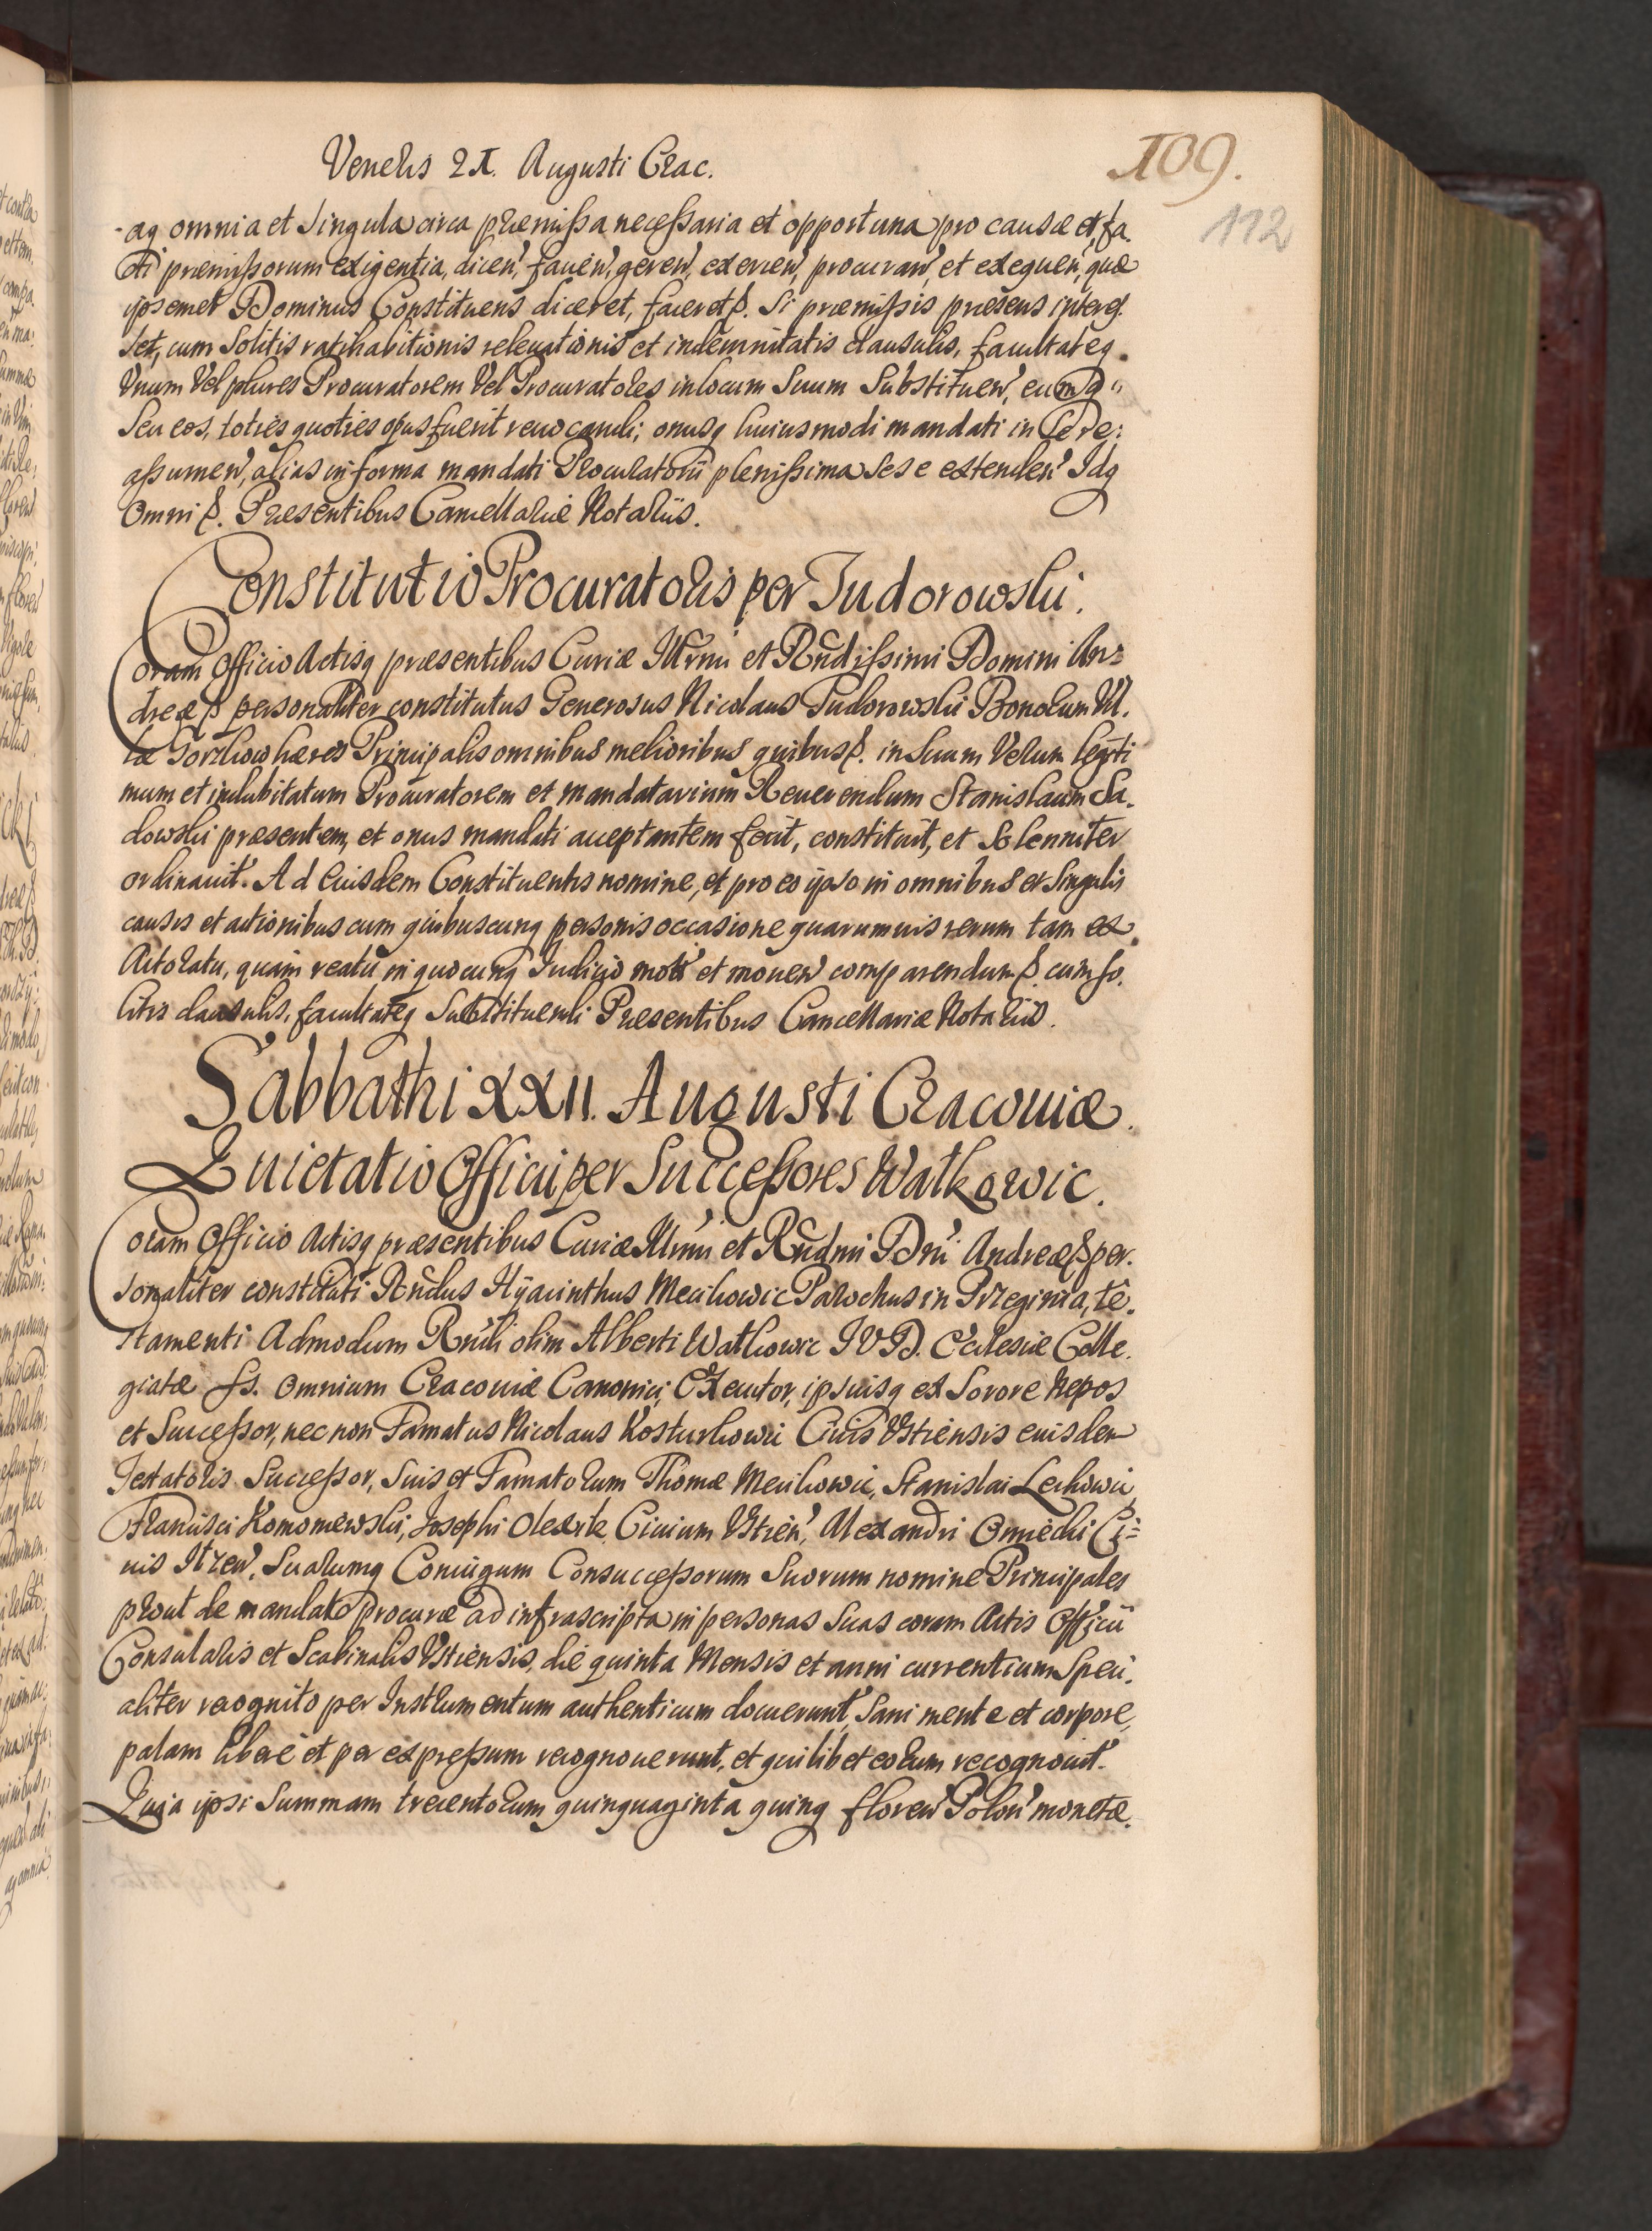 Veneris 21. Augusti Crac.
109.
112
-aq omnia et singula circa præmissa necessaria et opportuna pro causæ et fa.
cti præmissorum exigentia, dicen', facien', geren', exercen', procuran', et exequen', quæ
ipsemet Dominus Constituens diceret, faceret p. Si præmissis præsens interes
set, cum Solitis ratihabitionis releuationis et indemnitatis clausulis, facultateq.
Vnum Vel plures Procuratorem Vel Procuratores in locum Suum Substituen', eumq
Seu eos, toties quoties opus fuerit reuocandi; onusq huiusmodi mandati in se re:
assumen', alias in forma mandati Procuratorij plenissima Sese extenden' Idq
Omni p. Præsentibus Cancellariæ Notariis.
Constitutio Procuratoris per Tudorowski.
Coram Officio Actisq præsentibus Curiæ Illrmi et Rndissimi Domini An=
dreæ p personaliter constitutus Generosus Nicolaus Tudorowski Bonorum Vil.
læ Gorzkow hæres Principalis omnibus melioribus quibus p. in Suum Verum legiti
mum et indubitatum Procuratorem et mandatarium Reuerendum Stanislaum Sa.
dowski præsentem, et onus mandati acceptantem fecit, constituit, et Solenniter
ordinauit. Ad Eiusdem Constituentis nomine, et pro eo ipso in omnibus et Singulis
causis et actionibus cum quibuscunq personis occasione quarumuis rerum tam ex
Actoratu, quam reatu in quocunq Iudicio motis et mouen' comparendum p. cum so.
litis clausulis, facultateq Substituendi Præsentibus Cancellariæ Notariis.
Sabbathi XXII. Augusti Cracouiæ.
Quietatio Officij per Successores Watkowic.
Coram Officio Actisq præsentibus Curiæ Illrmi et Rndmi Dni Andreæ p per.
sonaliter constituti Rndus Hÿacinthus Mecihowic Parochus in Przeginia, te.
stamenti Admodum Rndi olim Alberti Watkowic IVD. Ecclesiæ Colle.
giatæ SS. Omnium Cracouiæ Canonici, Executor, ipsiusq ex Sorore Nepos
et Successor, nec non Famatus Nicolaus Kosturkowic Ciuis Vstiensis eiusdem
Testatoris Successor, Suis et Famatorum Thomæ Mecihowic, Stanislai Lechowic
Francisci Komomewski, Josephi Olexik Ciuium Vstien', Alexandri Omiecki Ci=
uis Itzen'. Suarumq Coniugum Consuccessorum Suorum nomine Principales
prout de mandato procuræ ad infrascripta in personas Suas coram Actis Officij
Consularis et Scabinalis Vstiensis, die quinta Mensis et anni currentium Speci.
aliter recognito per Instrumentum authenticum docuerunt, Sani mente et corpore,
palam libere et per expressum recognouerunt, et quilibet eorum recognouit.
Quia ipsi Summam trecentorum quinquaginta quinq floren' Polon' monetæ.